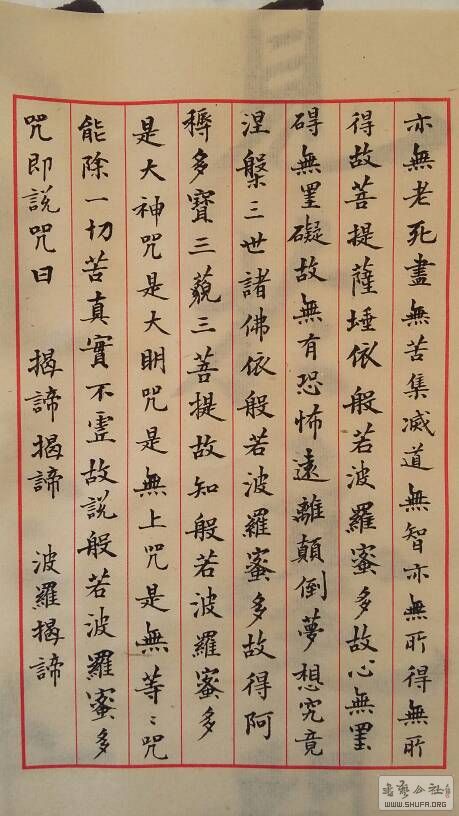 亦無老死盡無苦集滅道無智亦無所得無所
得故菩提薩埵依般若波羅蜜多故心無罣
碍無罣礙故無有恐怖遠離顛倒夢想究竟
涅槃三世諸佛依般若波羅蜜多故得阿
耨多寶三藐三菩提故知般若波羅蜜多
是大神咒是大明咒是無上咒是無等〻咒
能除一切苦真實不虛故說般若波羅蜜多
咒即說咒曰 揭諦揭諦 波羅揭諦
書藝公社
WWW.SHUFA.ORG